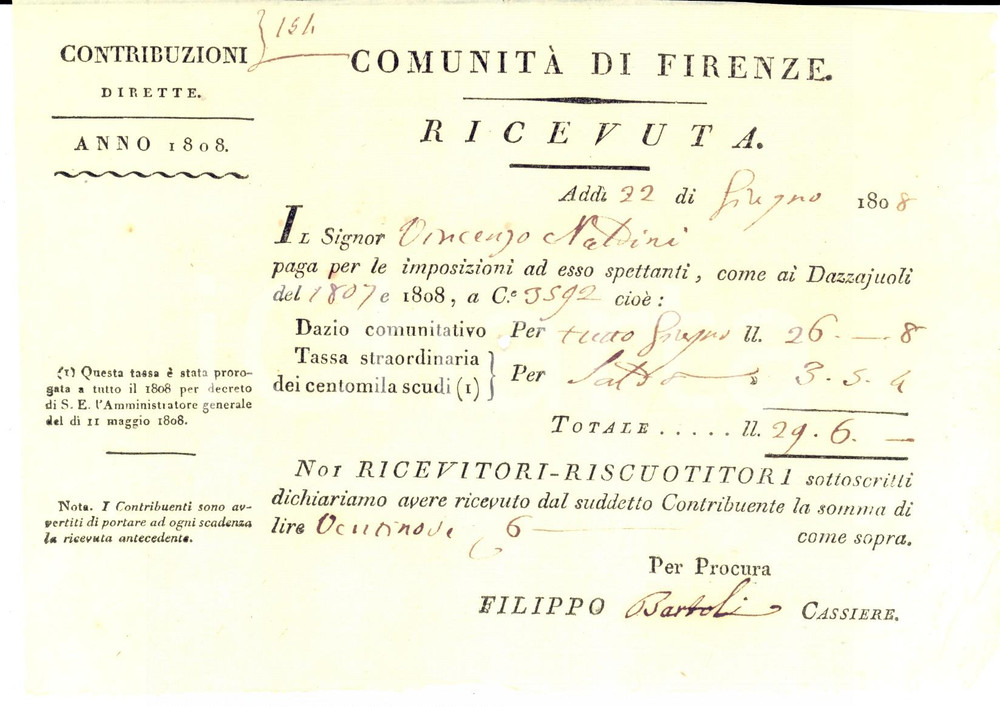 154
CONTRIBUZIONI
DIRETTE.
ANNO 1808.
COMUNITÀ DI FIRENZE.
RICEVUTA.
Addì 22 di Giugno 1808
IL Signor Vincenzo Naldini
paga per le imposizioni ad esso spettanti, come ai Dazzajuoli
del 1807 e 1808, a C.e 3592 cioè:
Dazio comunitativo Per tutto Giugno ll. 26. — 8
Tassa straordinaria
dei centomila scudi (1) } Per Saldo 3. 5. 4
TOTALE ..... ll. 29. 6. —
(1) Questa tassa è stata proro-
gata a tutto il 1808 per decreto
di S. E. l'Amministratore generale
del dì 11 maggio 1808.
Nota. I Contribuenti sono av-
vertiti di portare ad ogni scadenza
la ricevuta antecedente.
NOI RICEVITORI-RISCUOTITORI sottoscritti
dichiariamo avere ricevuto dal suddetto Contribuente la somma di
lire Ventinove 6 — come sopra.
Per Procura
FILIPPO Bartoli CASSIERE.